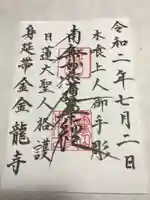 令和二年七月一日
木喰上人御手彫
南無妙法蓮華経
日蓮大聖人格護
身延帯金金龍寺